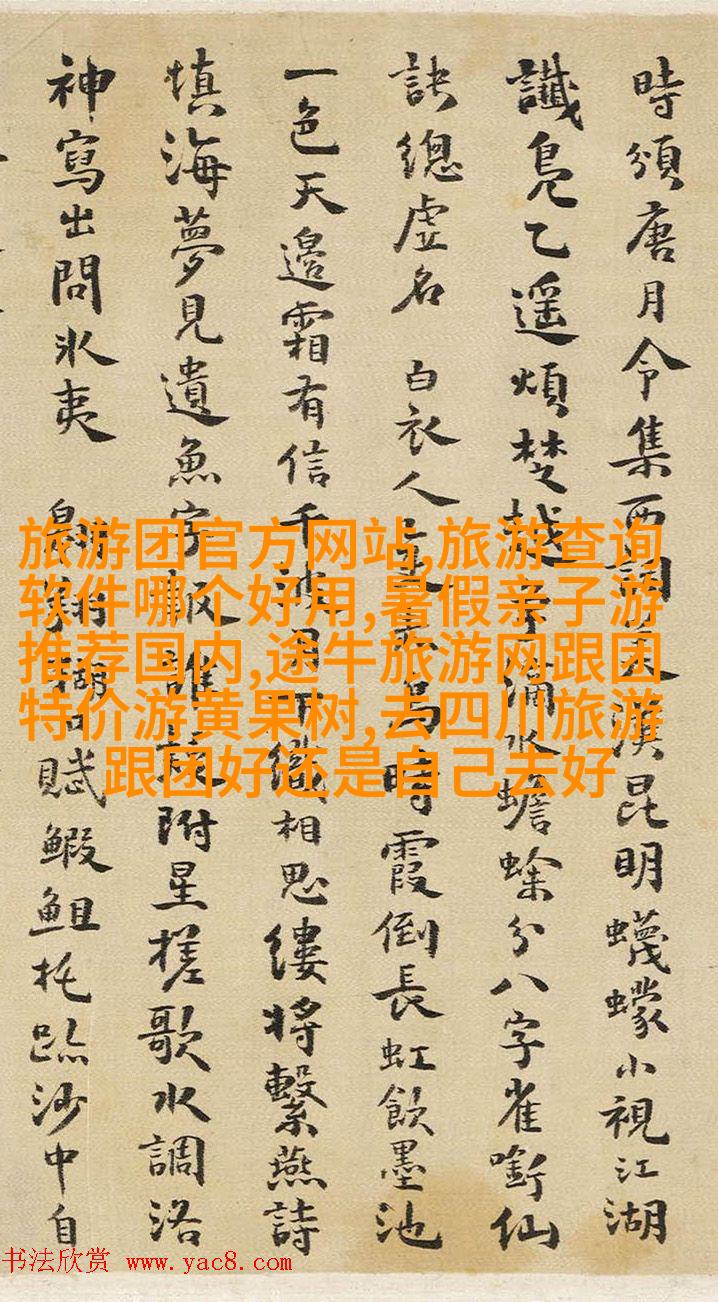 時頒唐月令集西天漢昆明蠛蠓小視江湖
讖鳧乙遥煩楚越水蟾蜍分八字雀銜仙
訣總虛名 白衣人時霞倒長虹飲墨池
一色天邊霜有信千織相思縷將繫燕詩
填海夢見遺魚字報誰附星槎歌水調洛
神寫出問氷夷 翱翔糊口賦鰕䱉托跡沙中自
旅游团官方网站,旅游查询
软件哪个好用,暑假亲子游
推荐国内,途牛旅游网跟团
特价游黄果树,去四川旅游
跟团好还是自己去好
书法欣赏 www.yac8.com